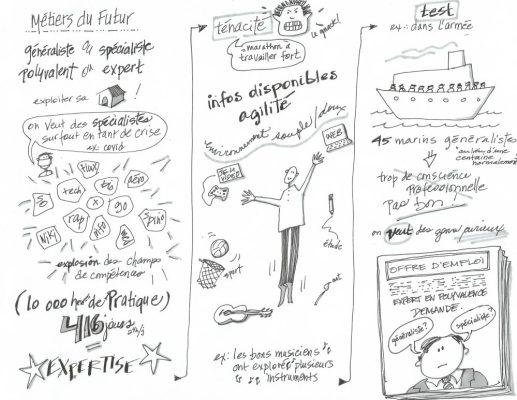 Métiers du Futur
généraliste ou spécialiste
polyvalent ou expert
exploiter sa
on veut des spécialistes
surtout en tant de crise
ex: covid
flux
tech
aéro
rap
x
go
Spino
Wiki
info
explosion des champs
de compétences
(10 000 hres de Pratique)
416 jours
EXPERTISE
ténacité
le quack!
marathon à
travailler fort
infos disponibles
agilité
environnement souple/doux
WEB
JEUX
VIDÉO
étude
sport
art
ex: les bons musiciens
ont exploré plusieurs
instruments
test
ex: dans l'armée
45 marins généralistes
au lieu d'une
centaine
normalement
trop de conscience
Professionnelle
Pas bon
on veut des gens curieux
OFFRE D'EMPLOI
EXPERT EN POLYVALENCE
DEMANDÉ
généraliste?
spécialiste?